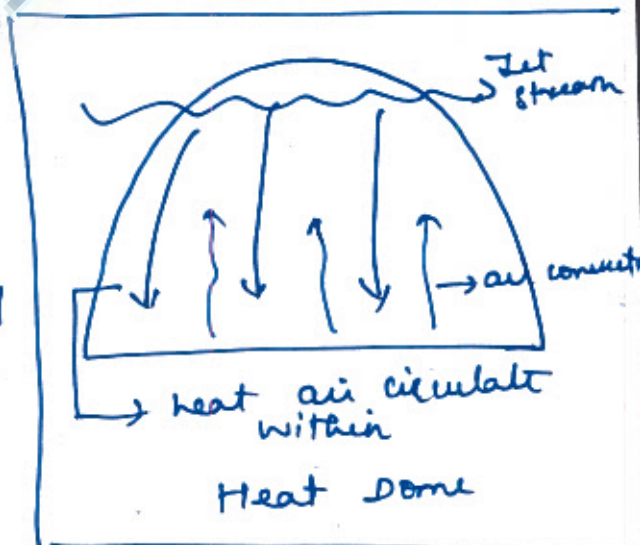 Jet
stream
air
heat air circulatt
within
Heat Dome